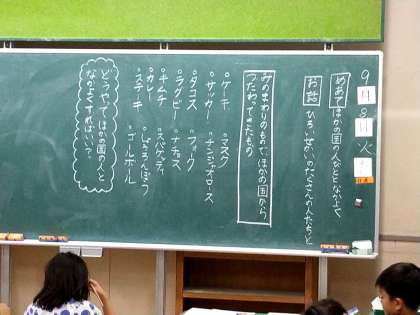 9月8日火
めあて ほかの国の人などとなかよく
お話 ひろいせかいのたくさんの人たちと
みのまわりのもので、ほかの国から
つたわってきたもの
・ケーキ
・サッカー
・タコス
・ラグビー
・キムチ
・カレー
・ステーキ
・マスク
・チンジャオロース
・フォーク
・ナチョス
・スパゲッティ
・しょうろんぽう
・ゴールボール
どうやってほかの国の人と
なかよくすればいい?